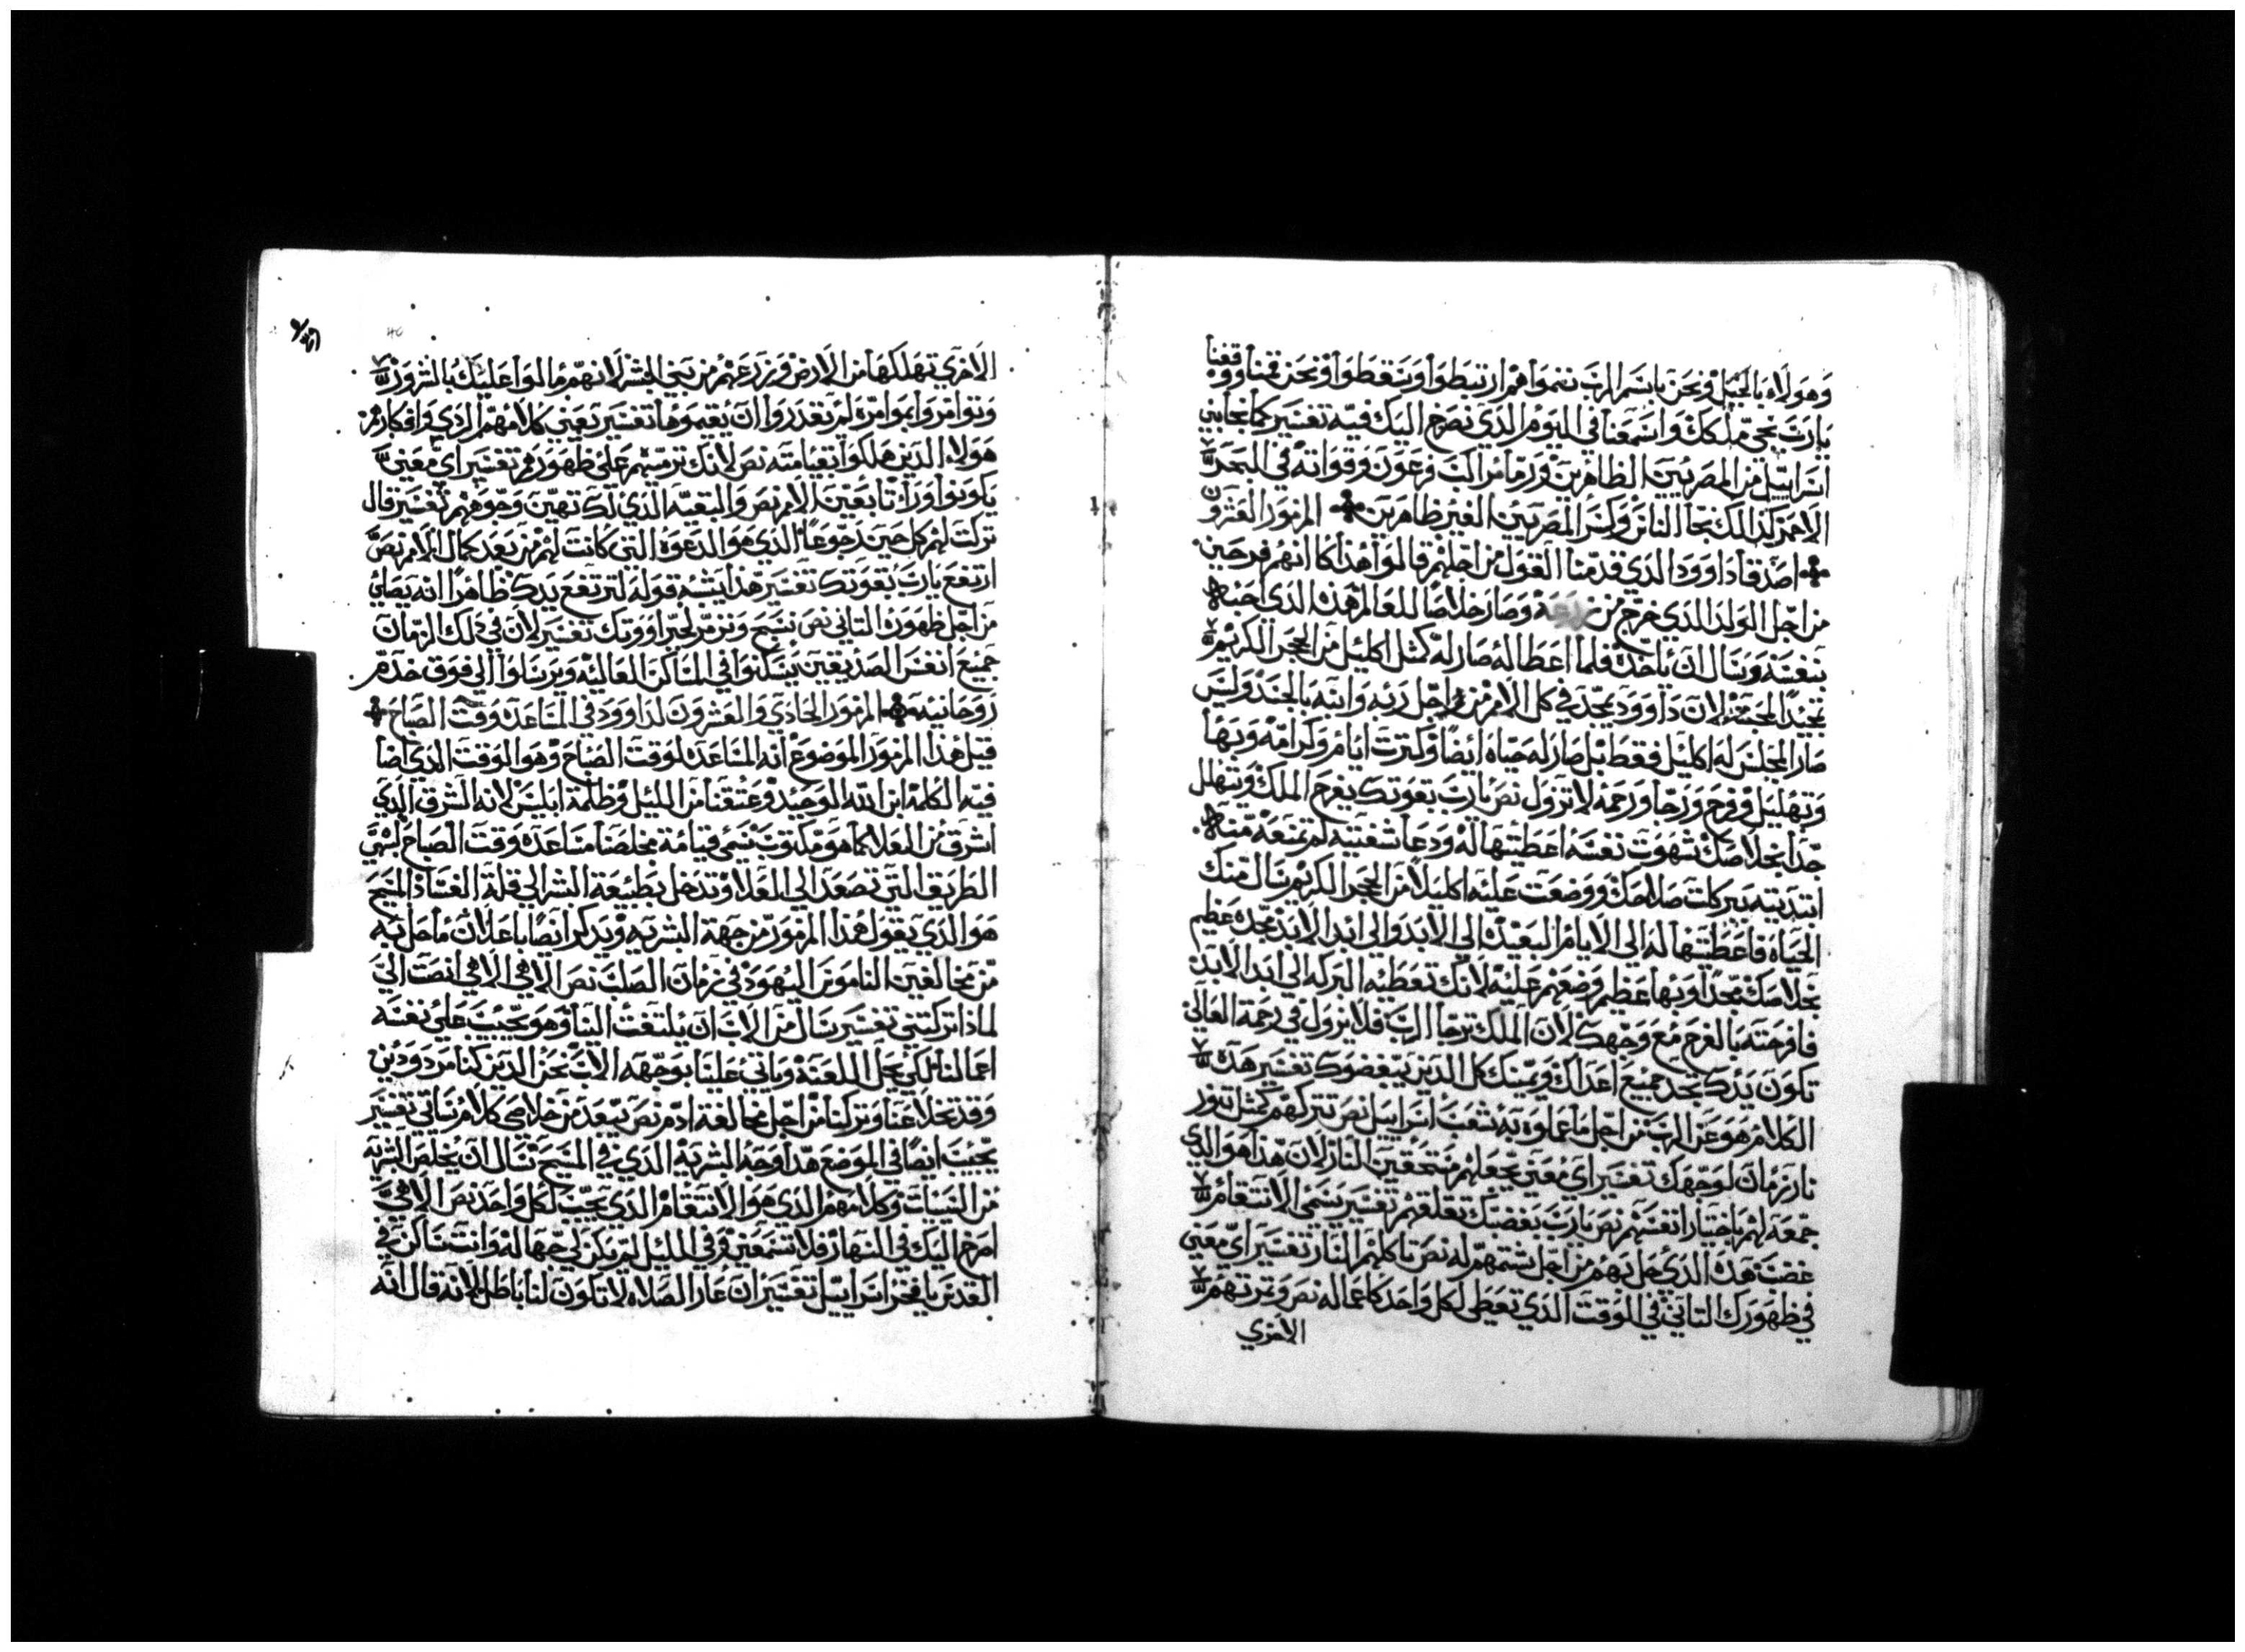 وهولاء بالخيل ونحن باسم الرب ننموا هم ارتبطوا وسقطوا ونحن قمنا ووقفنا
يارب نجي ملكك واسمعنا في اليوم الذي نصرخ اليك فيه تفسير كما نجا بني
اسراييل من المصريين الظاهرين ورما مراكب فرعون وقواته في البحر
الاحمر كذالك نجا الناس وكسر المصريين الغير ظاهرين المزمور العشرون
اصدقا داوود الذي قدمنا القول من اجلهم قالوا هذا كا انهم فرحين
من اجل الولد الذي خرج من وصار خلاصا للعالم هذه الذي احبه
بنفسه وسال ان ياخده فلما اعطا له صار له كمثل اكليل من الحجر الكريم
تجيد المحبة لان داوود يجد في كل الامر من اجل ربه وابنه بالجسد وليس
صار المجلس له اكليل فقط بل صار له حياه ايضا وكترت ايام وكرامه وبها
وتهليل وفرح ورجا ورحمه لا تزول نص يارب بقوتك يفرح الملك ويتهلل
جدا بخلاصك شهوت نفسه اعطيتها له ودعا شفتيه لم تمنعه منه
ابتديته ببركات صلاحك ووضعت عليه اكليلا من الحجر الكريم سال منك
الحياه فاعطيتها له الي الايام البعيده الي الابد والي ابد الابد مجده عظيم
بخلاصك مجدا وبها عظيم وضعهم عليه لانك تعطيه البركه الي ابد الابد
فافرحته بالفرح مع وجهك لان الملك ترجا الرب فلا يزول في رحمة العالي
تكون يدك تجد جميع اعداك ويمينك كل الذين يبغضوك تفسير هذه
الكلام هو عن الرب من اجل ما عملوه به شعب اسراييل نص تتركهم كمثل تنور
نار زمان لوجهك تفسير اي معني تجعلهم مستحقين النار لان هذا هو الذي
جمعه لهم باختيار انفسهم نص يارب بغضبك تقلقهم تفسير يسمي الانتقام
غضب هذه الذي حل بهم من اجل شتمهم له نص تاكلهم النار تفسير اي معني
في ظهورك التاني في الوقت الذي تعطي لكل واحد كاعماله نص وتمرتهم
الاخري
الاخري تهلكها من الارض وزرعهم من بني البشر لانهم مالوا عليك بالشرور
وتوامروا بموامره لم تقدروا ان يقيموها تفسير يعني كلامهم الردي وافكارهم
هولاء الذين هلكوا بقيامته نص لانك ترميهم علي ظهورهم تفسير اي معني
يكونوا وراك تابعين الام نص والبقيه الذي لك تهين وجوههم تفسير قال
تركت لهم كل حين رجوعا الذي هو الدعوه التي كانت لهم من بعد كمال الالام نص
ارتفع يارب بقوتك تفسير هذا يشبه قوله لترتفع يدك ظاهرا انه يصلي
من اجل ظهوره التاني نص نسبح ونزمر لجبراووتك تفسير لان في ذلك الزمان
جميع انفس الصديقين يسكنوا في المساكن العاليه ويرسلوا الي فوق خدم
روحانيه المزمور الحادي والعشرون لداوود في المساعده وقت الصباح
قيل هذا المزمور الموضوع انه المساعده لوقت الصباح وهو الوقت الذي اضا
فيه الكلمة ابن الله الوحيد وعتقنا من الليل وظلمة ابليس لانه الشرق الذي
اشرق من العلا كما هو مكتوب تسمي قيامة مخلصنا مساعده وقت الصباح لهي
الطريق التي تصعد الي العلا وتدخل بطبيعة البشر الي قلة الفساد المسيح
هو الذي يقول هذا المزمور من جهة البشريه ويذكر ايضا باعلان ما حل به
من مخالفين الناموس اليهود في زمان الصلب نص الاهي الاهي انصت الي
لماذا تركتني تفسير سال من الاب ان يلتفت الينا وهو يجيب علي نفسه
اعمالنا لكي يحل اللعنة وياتي علينا بوجهه الاب نحن الذين كنا مردودين
وقد تخلا عنا وتركنا من اجل مخالفة ادم نص يبعد من خلاصي كلام زلاتي تفسير
يجيب ايضا في الموضع هذا وجه البشرية الذي في المسيح تسال ان يخلص البشريه
من السيات وكلامهم الذي هو الانتقام الذي يجيب لكل واحد نص الاهي
اصرخ اليك في النهار فلا تسمعني وفي الليل لم يكن لي جهاله وانت ساكن في
القدس يا فخر اسراييل تفسير ان عار الصلاه لا تكون لنا باطل لانه قال انه